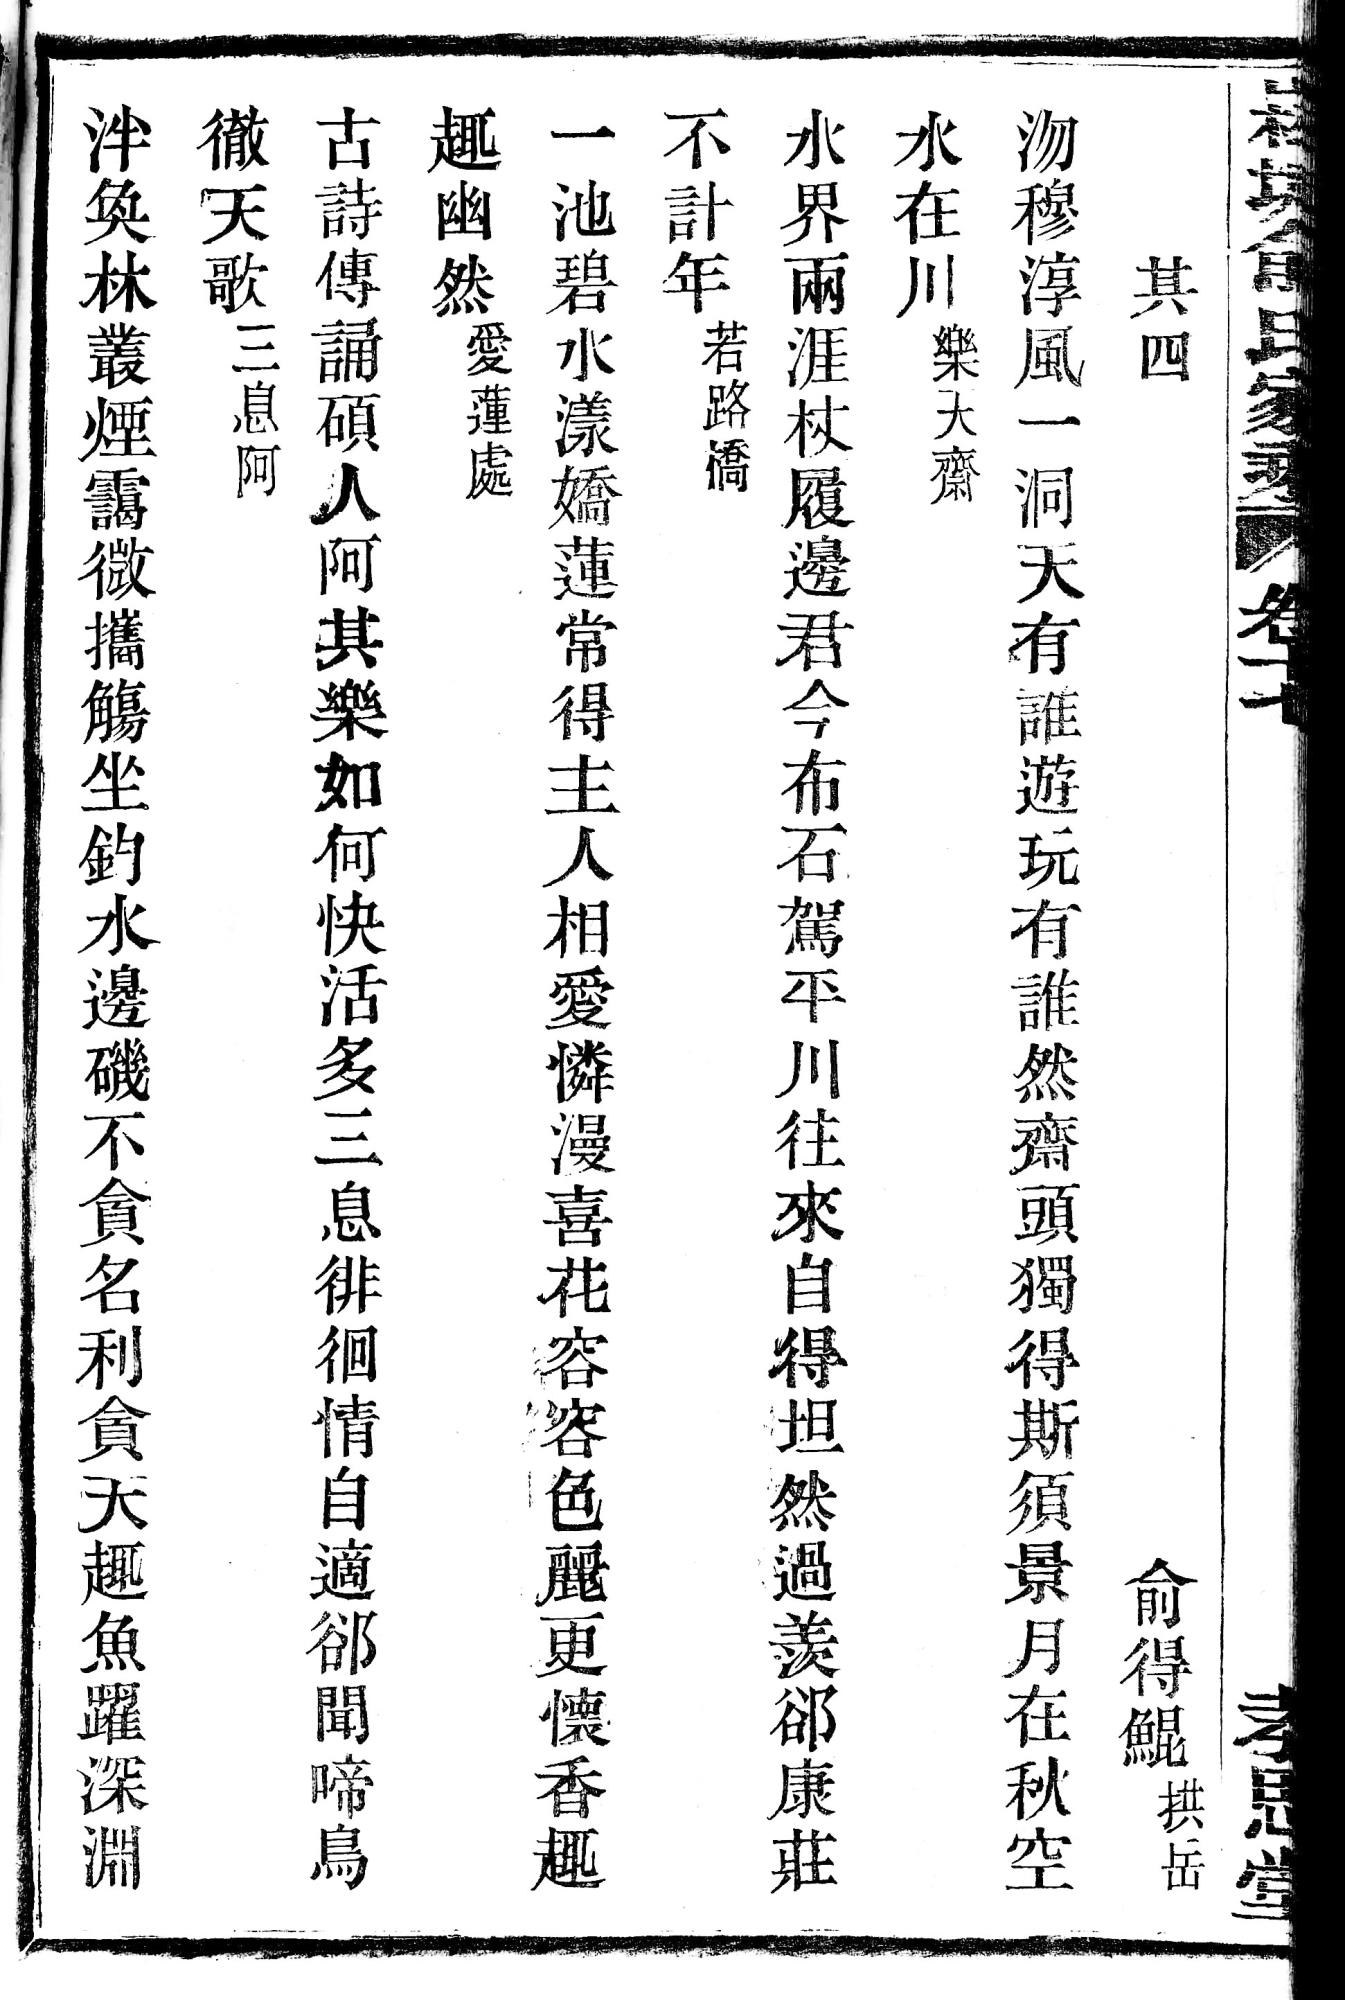 俞氏家乘 卷十七 孝思堂
其四 俞得鯤拱岳
沕穆淳風一洞天有誰遊玩有誰然齋頭獨得斯須景月在秋空
水在川樂天齋
水界兩涯杖履邊君今布石駕平川往來自得坦然過羨郤康莊
不計年若路橋
一池碧水漾嬌蓮常得主人相愛憐漫喜花容容色麗更懷香趣
趣幽然愛蓮處
古詩傳誦碩人阿其樂如何快活多三息徘徊情自適郤聞啼鳥
徹天歌三息阿
泮奐林叢煙靄微攜觴坐釣水邊磯不貪名利貪天趣魚躍深淵